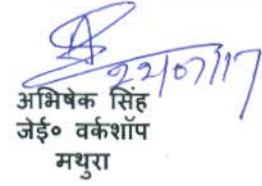 22/07/17
अभिषेक सिंह
जेई० वर्कशॉप
मथुरा